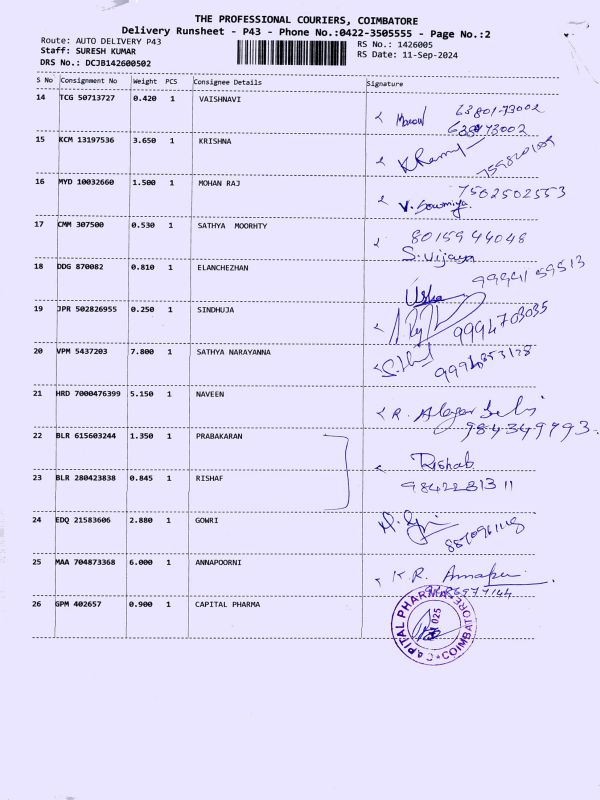 THE PROFESSIONAL COURIERS, COIMBATORE
Delivery Runsheet - P43 - Phone No.:0422-3505555 - Page No.:2
Route: AUTO DELIVERY P43 RS No.: 1426005
Staff: SURESH KUMAR RS Date: 11-Sep-2024
DRS No.: DCJB142600502
S No Consignment No Weight PCS Consignee Details Signature
14 TCG 50713727 0.420 1 VAISHNAVI 63801-73002
15 KCM 13197536 3.650 1 KRISHNA
16 MYD 10032660 1.500 1 MOHAN RAJ 7502502553
V. Sowmiya
17 CMM 307500 0.530 1 SATHYA MOORHTY 8015944048
S. Vijaya
18 DDG 870082 0.810 1 ELANCHEZHAN 9994159513
Usha
19 JPR 502826955 0.250 1 SINDHUJA 9994703035
20 VPM 5437203 7.800 1 SATHYA NARAYANNA
21 HRD 7000476399 5.150 1 NAVEEN R.
22 BLR 615603244 1.350 1 PRABAKARAN Rishab
23 BLR 280423838 0.845 1 RISHAF 9842281311
24 EDQ 21583606 2.880 1 GOWRI
25 MAA 704873368 6.000 1 ANNAPOORNI K.R.
26 GPM 402657 0.900 1 CAPITAL PHARMA CAPITAL PHARMA COIMBATORE